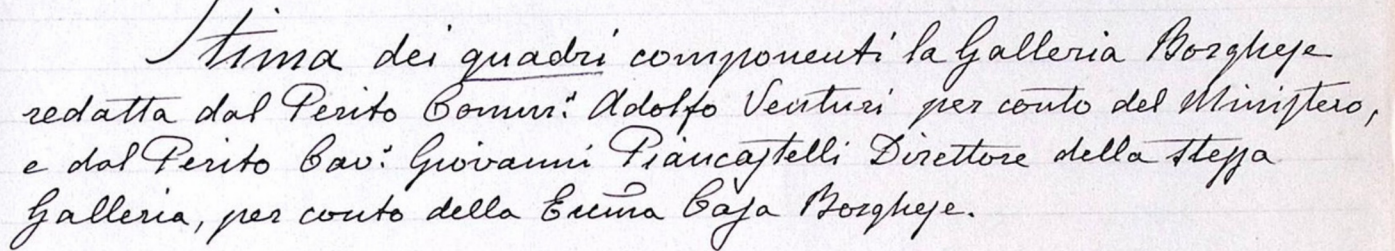 Stima dei quadri componenti la Galleria Borghese
redatta dal Perito Comm.r Adolfo Venturi per conto del Ministero,
e dal Perito Cav.r Giovanni Piancastelli Direttore della stessa
Galleria, per conto della Ecc̃ma Casa Borghese.